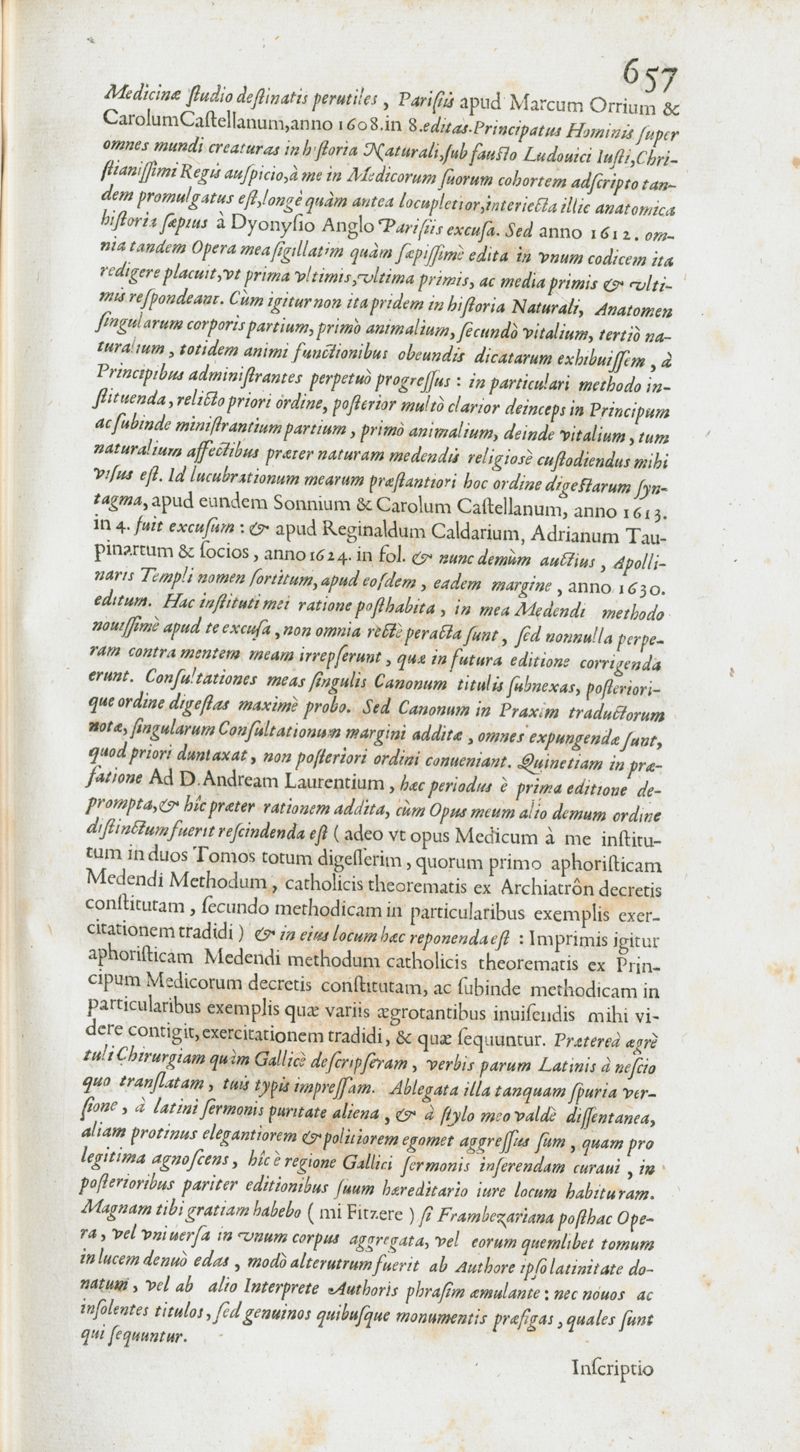 657
Medicinæ ſtudio deſtinatis perutiles, Pariſiis apud Marcum Orrium &
CarolumCaſtellanum,anno 1608.in 8.editas.Principatus Hominis ſuper
omnes mundi creaturas in hiſtoria Naturali,ſub fauſto Ludouici Iuſti,Chri-
ſtianiſſimi Regis auſpicio,à me in Medicorum ſuorum cohortem adſcripto tan-
dem promulgatus eſt,longè quàm antea locupletior,interiecta illic anatomica
hiſtoria ſæpius à Dyonyſio Anglo Pariſiis excuſa. Sed anno 1612. om-
nia tandem Opera mea ſigillatim quàm ſæpiſſimè edita in vnum codicem ita
redigere placuit,vt prima vltimis,vltima primis, ac media primis & vlti-
mis reſpondeant. Cùm igitur non ita pridem in hiſtoria Naturali, Anatomen
ſingularum corporis partium, primò animalium, ſecundò vitalium, tertiò na-
turalium, totidem animi functionibus obeundis dicatarum exhibuiſſem, à
Principibus adminiſtrantes perpetuò progreſſus : in particulari methodo in-
ſtituenda, relicto priori ordine, poſterior multò clarior deinceps in Principum
ac ſubinde miniſtrantium partium, primò animalium, deinde vitalium, tum
naturalium affectibus præter naturam medendis religiosè cuſtodiendus mihi
viſus eſt. Id lucubrationum mearum præſtantiori hoc ordine digeſtarum ſyn-
tagma, apud eundem Sonnium & Carolum Caſtellanum, anno 1613.
in 4. fuit excuſum : & apud Reginaldum Caldarium, Adrianum Tau-
pinartum & ſocios, anno 1624. in fol. & nunc demùm auctius, Apolli-
naris Templi nomen ſortitum, apud eoſdem, eadem margine, anno 1630.
editum. Hac inſtituti mei ratione poſthabita, in mea Medendi methodo
nouiſſimè apud te excuſa, non omnia rectè peracta ſunt, ſed nonnulla perpe-
ram contra mentem meam irrepſerunt, quæ in futura editione corrigenda
erunt. Conſultationes meas ſingulis Canonum titulis ſubnexas, poſteriori-
que ordine digeſtas maximè probo. Sed Canonum in Praxim traductorum
notæ, ſingularum Conſultationum margini additæ, omnes expungendæ ſunt,
quod priori duntaxat, non poſteriori ordini conueniant. Quinetiam in præ-
fatione Ad D. Andream Laurentium, hæc periodus è prima editione de-
prompta,& hîc præter rationem addita, cùm Opus meum alio demum ordine
diſtinctum fuerit reſcindenda eſt ( adeo vt opus Medicum à me inſtitu-
tum in duos Tomos totum digeſſerim, quorum primo aphoriſticam
Medendi Methodum, catholicis theorematis ex Archiatrôn decretis
conſtitutam, ſecundo methodicam in particularibus exemplis exer-
citationem tradidi ) & in eius locum hæc reponenda eſt : Imprimis igitur
aphoriſticam Medendi methodum catholicis theorematis ex Prin-
cipum Medicorum decretis conſtitutam, ac ſubinde methodicam in
particularibus exemplis quæ variis ægrotantibus inuiſendis mihi vi-
dere contigit, exercitationem tradidi, & quæ ſequuntur. Prætereà ægrè
tuli Chirurgiam quàm Gallicè deſcripſeram, verbis parum Latinis à neſcio
quo tranſlatam, tuis typis impreſſam. Ablegata illa tanquam ſpuria ver-
ſione, à latini ſermonis puritate aliena, & à ſtylo meo valdè diſſentanea,
aliam protinus elegantiorem & politiorem egomet aggreſſus ſum, quam pro
legitima agnoſcens, hîc è regione Gallici ſermonis inſerendam curaui, in
poſterioribus pariter editionibus ſuum hæreditario iure locum habituram.
Magnam tibi gratiam habebo ( mi Fitzere ) ſi Frambezariana poſthac Ope-
ra, vel vniuerſa in vnum corpus aggregata, vel eorum quemlibet tomum
in lucem denuò edas, modò alterutrum fuerit ab Authore ipſo latinitate do-
natum, vel ab alio Interprete Authoris phraſim æmulante : nec nouos ac
inſolentes titulos, ſed genuinos quibuſque monumentis præfigas, quales ſunt
qui ſequuntur.
Inſcriptio